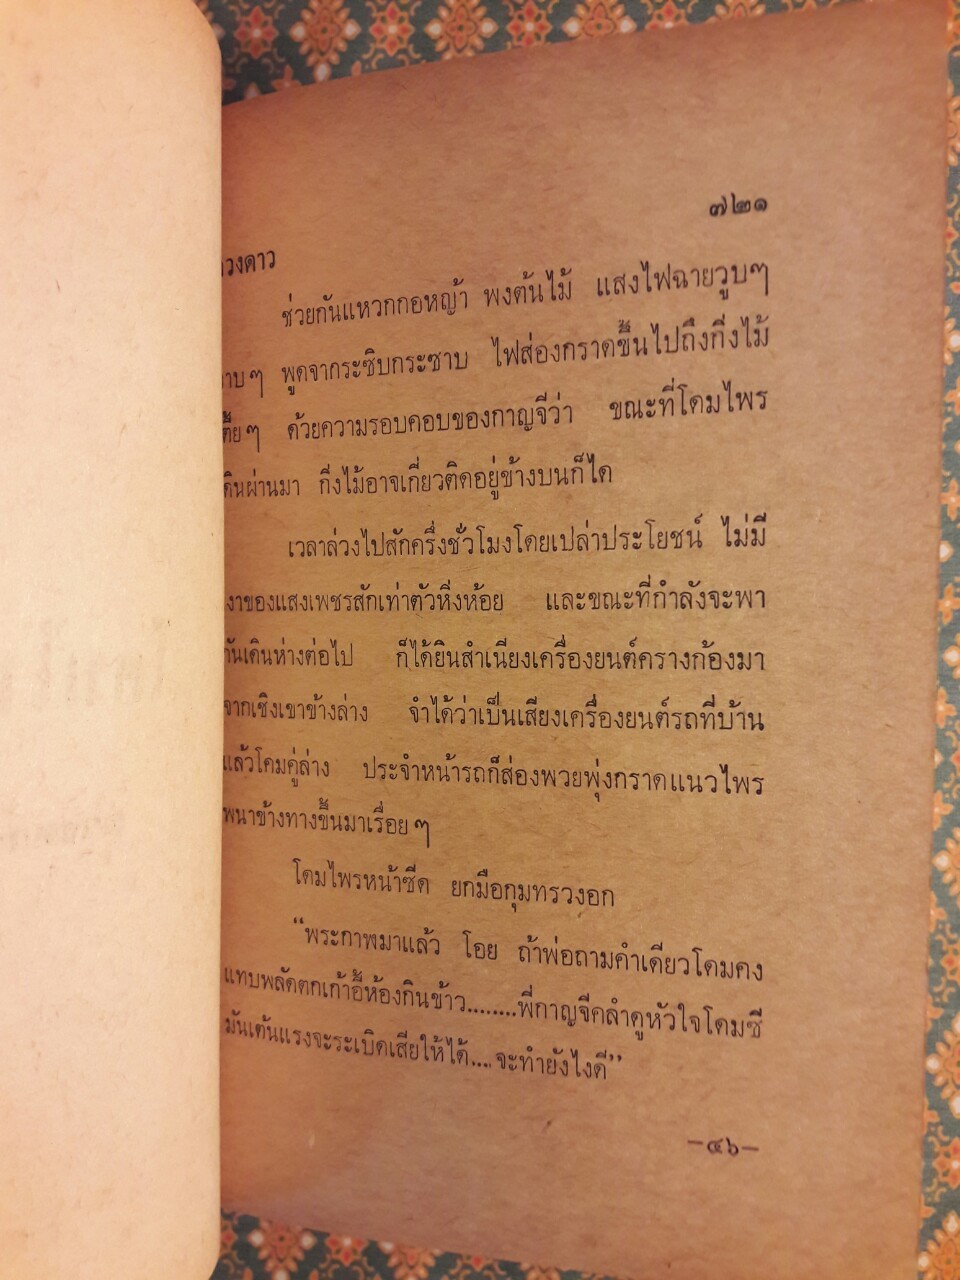 ๗๒๑
วงดาว
ช่วยกันแหวกกอหญ้า พงต้นไม้ แสงไฟฉายวูบๆ
าบๆ พูดจากระซิบกระซาบ ไฟส่องกราดขึ้นไปถึงกิ่งไม้
เตี้ยๆ ด้วยความรอบคอบของกาญจีว่า ขณะที่โดมไพร
เดินผ่านมา กิ่งไม้อาจเกี่ยวติดอยู่ข้างบนก็ได
เวลาล่วงไปสักครึ่งชั่วโมงโดยเปล่าประโยชน์ ไม่มี
งาของแสงเพชรสักเท่าตัวหิ่งห้อย และขณะที่กำลังจะพา
กันเดินห่างต่อไป ก็ได้ยินสำเนียงเครื่องยนต์ครางก้องมา
จากเชิงเขาข้างล่าง จำได้ว่าเป็นเสียงเครื่องยนต์รถที่บ้าน
แล้วโคมคู่ล่าง ประจำหน้ารถก็ส่องพวยพุ่งกราดแนวไพร
พนาข้างทางขึ้นมาเรื่อยๆ
โดมไพรหน้าซีด ยกมือกุมทรวงอก
“พระกาฬมาแล้ว โอย ถ้าพ่อถามคำเดียวโดมคง
แทบพลัดตกเก้าอี้ห้องกินข้าว........พี่กาญจีคลำดูหัวใจโดมซี
มันเต้นแรงจะระเบิดเสียให้ได้....จะทำยังไงดี”
–๔๖–